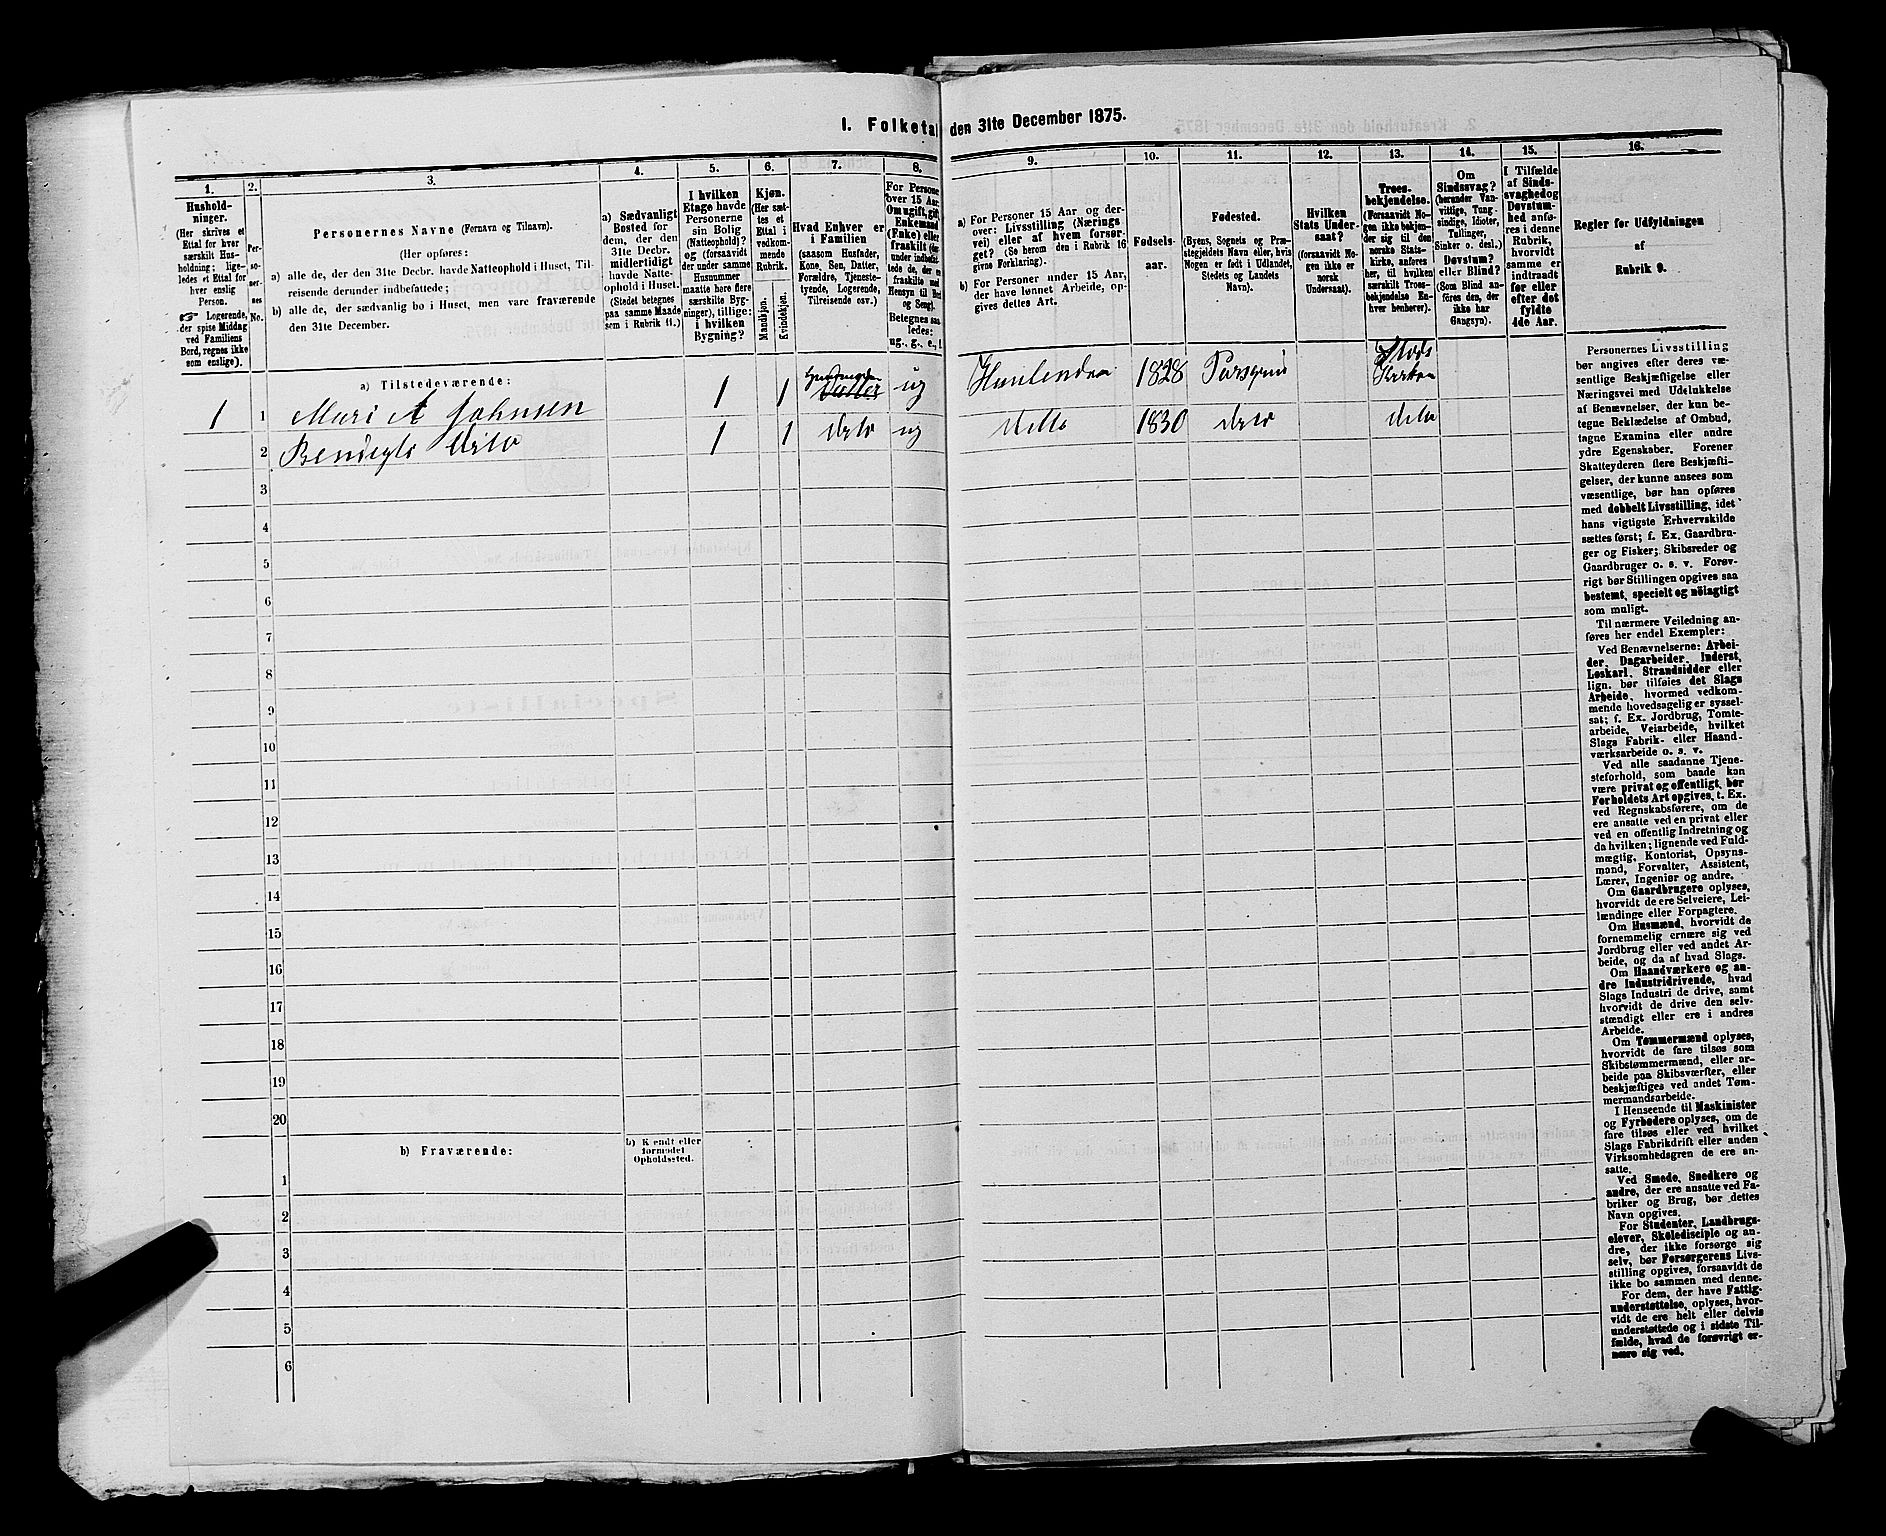 I. Folketal den 31te December 1875.
1.
2.
3.
4.
5.
6.
7.
8.
9.
10.
11.
12.
13.
14.
15.
16.
Hushold-
ninger.
(Her skrives et
Ettal for hver
særskilt Hus-
holdning; lige-
ledes et Ettal for
hver enslig
Person.
☞ Logerende,
der spise Middag
ved Familiens
Bord, regnes ikke
som enslige).
Per-
so-
ner-
nes
No.
Personernes Navne (Fornavn og Tilnavn).
(Her opføres:
a) alle de, der den 31te Decbr. havde Natteophold i Huset, Til-
reisende derunder indbefattede;
b) alle de, der sædvanlig bo i Huset, men vare fraværende
den 31te December.
a) Sædvanligt
Bosted for
dem, der den
31te Decbr.
midlertidigt
havde Natte-
ophold i Huset.
(Stedet betegnes
paa samme Maade
som i Rubrik 11.)
I hvilken
Etage havde
Personerne
sin Bolig
(Natteophold)?
og (forsaavidt
der under samme
Husnummer
maatte høre flere
særskilte Byg-
ninger), tillige:
i hvilken
Bygning?
Kjøn.
(Her sæt-
tes et
Ettal i
vedkom-
mende
Rubrik.
Mandkjøn.
Kvindekjøn.
Hvad Enhver er
i Familien
(saasom Husfader,
Kone, Søn, Datter,
Forældre, Tjeneste-
tyende, Logerende,
Tilreisende osv.)
For Persone
over 15 Aar,
Om ugift, gift,
Enkemand
(Enke) eller
fraskilt (der-
under indbefat-
tede de, der er
fraskilte med
Hensyn til Bord
og Seng).
Betegnes saa-
ledes:
ug., g., e., f.
a) For Personer 15 Aar og der-
over: Livsstilling (Nærings
vei) eller af hvem forsør-
get? (Se herom den i Rubrik 16
givne Forklaring).
b) For Personer under 15 Aar,
der have lønnet Arbeide, op-
gives dettes Art.
Fødsels-
aar.
Fødested.
(Byens, Sognets og Præ-
stegjeldets Navn eller, hvis
Nogen er født i Udlandet,
Stedets og Landets
Navn).
Hvilken
Stats Under-
saat?
(forsaavidt No-
gen ikke er
norsk
Undersaat).
Troes-
bekjendelse.
(Forsaavidt No-
gen ikke bekjen-
der sig til den
norske Stats-
kirke, anføres
her, til hvilken
særskilt Troes-
bekjendelse En-
hver henhører).
Om
Sindssvag?
(herunder Van-
vittige, Tung-
sindige, Idioter,
Tullinger,
Sinker o. desl.)
Døvstum?
eller Blind?
(Som Blind an-
føres den, der
ikke har
Gangsyn).
I Tilfælde
af Sinds-
svaghed og
Døvstum-
hed anfø-
res i denne
Rubrik,
hvorvidt
samme er
indtraadt
før eller
efter det
fyldte
4de Aar.
Regler for Udfyldningen
af
Rubrik 9.
a) Tilstedeværende:
1 1 Mari A Johnsen 1 1 Datter ug 1828 Stats Kirken
2 1 1 deto ug detto 1830 deto deto
3
4
5
6
7
8
9
10
11
12
13
14
15
16
17
18
19
20
b) Fraværende:
b) Kjendt eller
formodet
Opholdssted.
1
2
3
4
5
6
Personernes Livsstilling
bør angives efter deres væ-
sentlige Beskjæftigelse eller
Næringsvei med Udelukkelse
af Benævnelser, der kun be-
tegne Beklædelse af Ombud,
tagne Examina eller andre
ydre Egenskaber. Forener
Skatteyderen flere Beskjæfti-
gelser, der kunne ansees som
væsentlige, bør han opføres
med dobbelt Livsstilling, idet
hans vigtigste Erhvervskilde
sættes først; f. Ex. Gaardbru-
ger og Fisker; Skibsreder og
Gaardbruger o. s. v. Forøv-
rigt bør Stillingen opgives saa
bestemt, specielt og nöiagtigt
som muligt.
Til nærmere Veiledning an-
føres her endel Exempler:
Ved Benævnelserne: Arbei-
der, Dagarbeider, Inderst,
Løskarl, Strandsidder eller
lign. bør tilføies det Slags
Arbeide, hvormed vedkom-
mende hovedsagelig er syssel-
sat; f. Ex. Jordbrug, Tomte-
arbeide, Veiarbeide, hvilket
Slags Fabrik- eller Haand-
værksarbeide o. s. v.
Ved alle saadanne Tjene-
steforhold, som baade kan
være privat og offentligt, bør
Forholdets Art opgives, f. Ex.
ved Regnskabsførere, om de
ere ansatte ved en privat eller
ved en offentlig Indretning og
da hvilken; lignende ved Fuld-
mægtig, Kontorist, Opsyns-
mand, Forvalter, Assistent,
Lærer, Ingeniør og andre.
Om Gaardbrugere oplyses,
hvorvidt de ere Selveiere, Lei-
lændinge eller Forpagtere.
Om Husmænd, hvorvidt de
fornemmelig ernære sig ved
Jordbrug eller ved andet Ar-
beide, og da af hvad Slags.
Om Haandværkere og an-
dre Industridrivende, hvad
Slags Industri de drive, samt
hvorvidt de drive den selv-
stændigt eller ere i andres
Arbeide.
Om Tømmermænd oplyses,
hvorvidt de fare tilsøs som
Skibstømmermænd, eller ar-
beide paa Skibsværfter, eller
beskjæftiges ved andet Tøm-
mermandsarbeide.
I Henseende til Maskinister
og Fyrbødere oplyses, om de
fare tilsøs eller ved hvilket
Slags Fabrikdrift eller anden
Virksomhedsgren de ere an-
satte.
Ved Smede, Snedkere og
andre, der ere ansatte ved Fa-
briker og Brug, bør dettes
Navn opgives.
For Studenter, Landbrugs-
elever, Skoledisciple og an-
dre, der ikke forsørge sig
selv, bør Forsørgerens Livs-
stilling opgives, forsaavidt de
ikke bo sammen med denne.
For dem, der have Fattig-
understøttelse, oplyses, hvor-
vidt de ere helt eller delvis
understøttede og i sidste Til-
fælde, hvad de forøvrigt er-
nære sig ved.